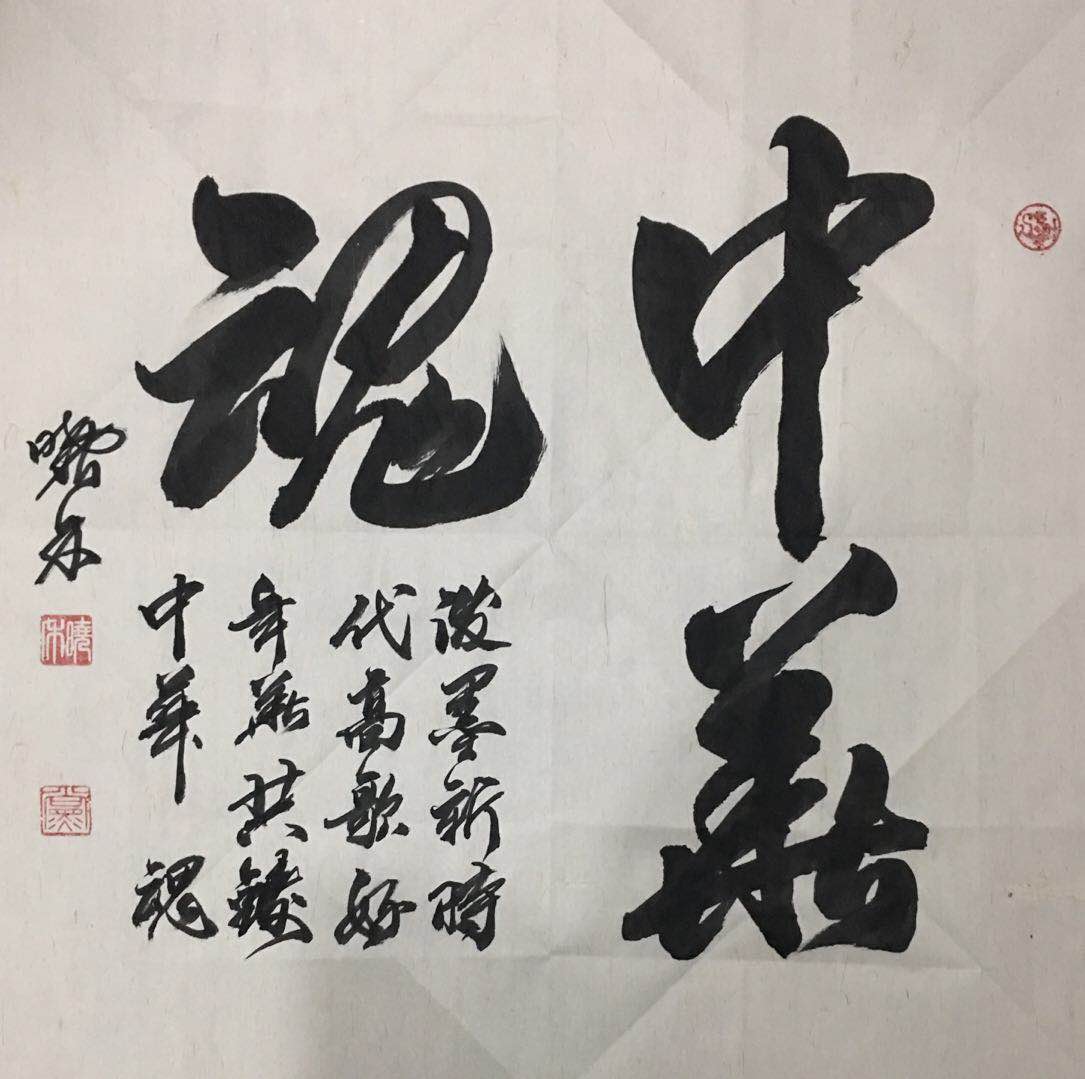 中華
魂
泼墨新時
代高歌好
年華共鑄
中華魂